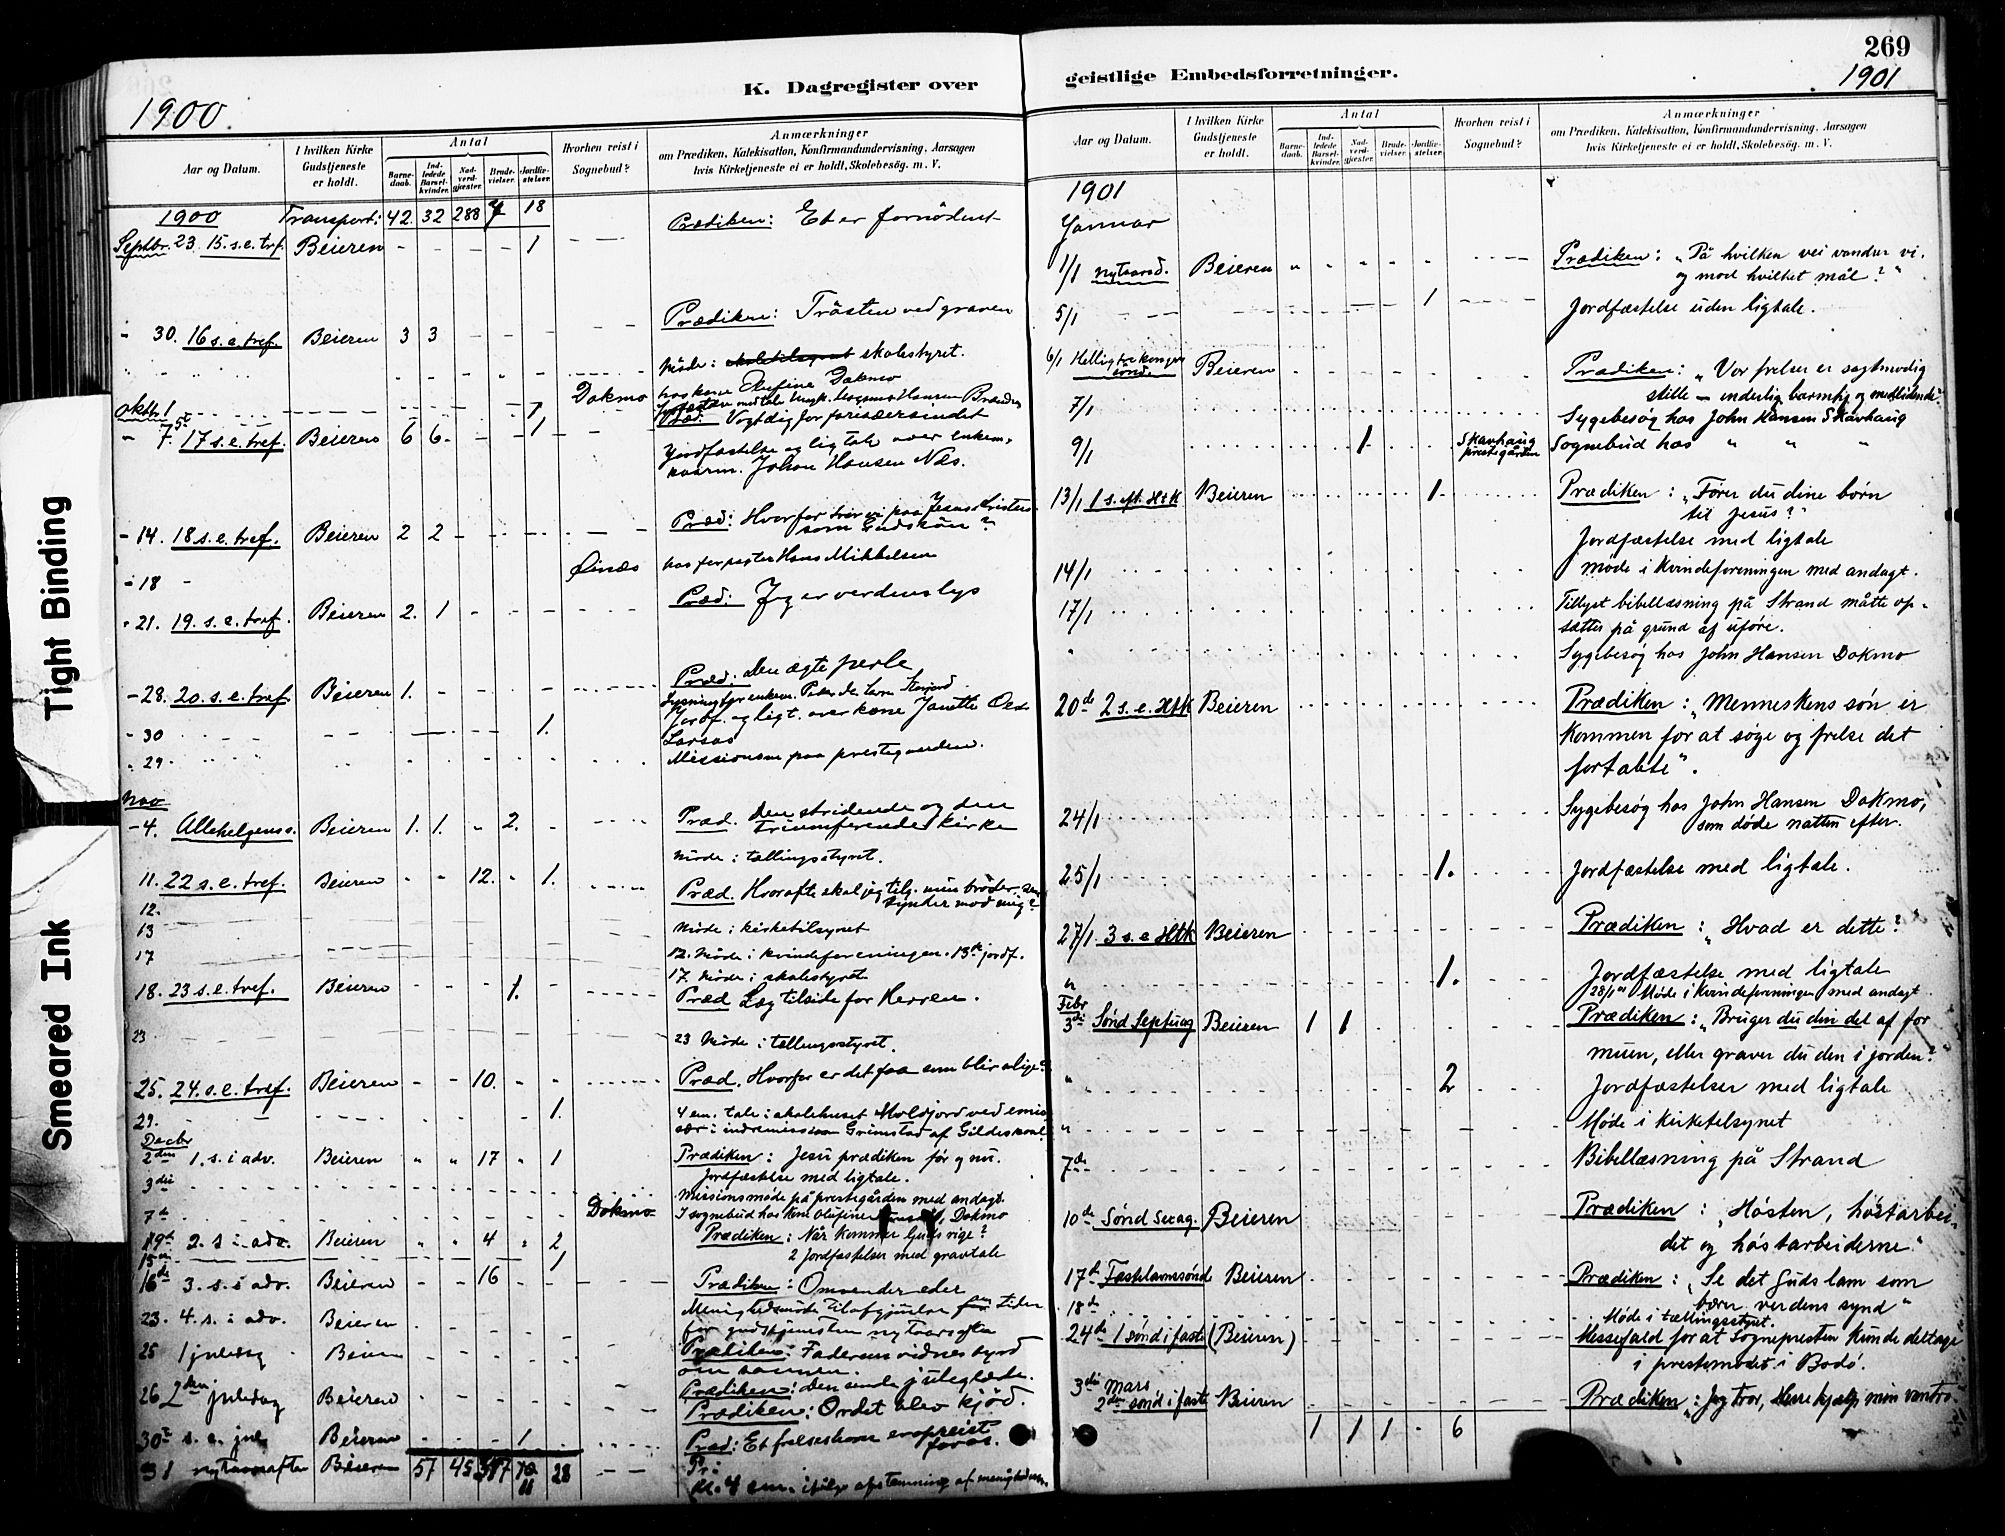 269
K. Dagregister over geistlige Embedsforretninger.
1900
1901
Tight Binding
Smeared Ink
Aar og Datum.
I hvilken Kirke Gudstjeneste er holdt.
Antal
Barnedaab.
Indledede Barselkvinder.
Nadverdgjæster.
Brudevielser.
Jordfæstelser.
Hvorhen reist i Sognebud?
Anmærkninger
om Prædiken, Katekisation, Konfirmandundervisning, Aarsagen
hvis Kirketjeneste ei er holdt, Skolebesøg. m. V.
1900 Transport: 42. 32 288 7 18
Prædiken: Et er fornødent
Septbr. 23. 15. s. e. tref. Beieren 1
Prædiken: Trösten ved graven
- 30. 16 s. e. tref. Beieren 3 3
Möde i skolestyret.
oktbr 1 Dokmo hos kone Olufine Dokmo
- 7. 17 s. e. tref. Beieren 6 6 1
Præd: Vogt dig for
Jordfæstelse og ligtale over enkem.
Johan Hansen Næs.
Præd: Hvorfor tror vi paa Jesus Kristus
som Guds søn?
- 14. 18 s. e. tref. Beieren 2 2
- 18 Øinæs hos forpagter Hans Mikkelsen
Præd: Jeg er verdens lys
- 21. 19. s. e. tref. Beieren 2. 1
Præd: Den ægte perle
- 28. 20. s. e. tref. Beieren 1.
Jordf. og ligt. over kone Janette
- 30 1. Larsos
- 29. Missionsm paa prestegaarden.
Nov
- 4. Allehelgenss. Beieren 1. 1. 2.
Præd. Den stridende og den
triumferende kirke
Möde i tællingsstyret.
11. 22 s. e. tref. Beieren 12. 1.
Præd. Hvor ofte skal jeg tilg. min broder, som
synder mod mig?
12.
13 Möde i kirketilsynet
17 12. Möde i kvindeforeningen. 13de jordf.
17. Möde i skolestyret
18. 23 s. e. tref. Beieren 1.
Præd Læg tilside for Herren.
23 23 Möde i tællingsstyret.
- 25. 24. s. e. tref. Beieren 10.
Præd. Hvorfor er det faa som blir salige?
29. 1. 4 em. tale i skolehuset Moldjord ved emis-
sær i indremission Grimstad af Gildeskaal
Decbr
2den 1. s. i adv. Beieren 17 1
Prædiken: Jesu prædiken før og nu.
Jordfæstelse med ligtale.
3die Missionsmøde på prestegården med andagt.
7de Dokmo I sognebud hos Kone Olufine Dokmo
9de 2. s. i adv. Beieren 4 2
Prædiken: Når kommer Guds rige?
2 Jordfæstelser med gravtale
15de 1
16de 3. s. i adv. Beieren 16
Prædiken: Omvender eder
23. 4. s. i adv. Beieren
for gudstjenesten nytaarsaften
25 1 juledag Beieren
Prædiken: Faderens vidnesbyrd
om sønnen.
26 2den juledag Beieren
Prædiken: Den sande juleglæde.
Prædiken: Ordet blev kjød.
30te s. e. jul Beieren 1
Præd: Et frelseshorn er opreist
for os.
31 nytaarsaften Beieren 57 45 28
Kl. 4 em. ifølge afstemning af menigheden.
Aar og Datum.
I hvilken Kirke Gudstjeneste er holdt.
Antal
Barnedaab.
Indledede Barselkvinder.
Nadverdgjæster.
Brudevielser.
Jordfæstelser.
Hvorhen reist i Sognebud?
Anmærkninger
om Prædiken, Katekisation, Konfirmandundervisning, Aarsagen
hvis Kirketjeneste ei er holdt, Skolebesøg. m. V.
1901
Januar
1/1 nytaarsd. Beieren Prædiken: "På hvilken vei vandrer vi,
og mod hvilket mål?"
5/1 1 Jordfæstelse uden ligtale.
6/1 Hellig tre kongers sønd. Beieren Prædiken: "Vor frelser er sagtmodig
stille – inderlig barmhj og medlidende."
7/1 Sygebesøg hos John Hansen Skavhaug
9/1 1 Skavhaug prestegården Sognebud hos " " "
13/1 1 s. eft. HtK Beieren 1 Prædiken: "Fører du dine børn
til Jesus?"
Jordfæstelse med ligtale
14/1 Møde i Kvindeforeningen med andagt.
17/1 Tillyst bibellæsning på Strand måtte op-
sættes på grund af uføre.
" Sygebesøg hos John Hansen Dokmo
20de 2 s. e. HtK Beieren Prædiken: "Menneskens søn er
kommen for at søge og frelse det
fortabte".
24/1 Sygebesøg hos John Hansen Dokmo,
som døde natten efter.
25/1 1. Jordfæstelse med ligtale.
27/1 3 s. e HtK Beieren Prædiken: "Hvad er dette?"
" 1. Jordfæstelse med ligtale
28/1 Møde i Kvindeforeningen med andagt
Febr
3die Sønd Septuag Beieren 1 1 Prædiken: "Bruger du din del af for
muen, eller graver du den i jorden?"
" 2 Jordfæstelser med ligtale
" Møde i Kirketilsynet
7de Bibellæsning på Strand
10de Sønd Sexag. Beieren Prædiken: "Høsten, høstarbei-
det og høstarbeiderne."
17de Fastelavnssønd Beieren Prædiken: "Se det Guds lam som
bærer verdens synd"
18de Møde i tællingsstyret.
24de 1 sønd i faste (Beieren) Messefald for at Sognepresten kunde deltage
i prestemødet i Bodø.
Mars
3die 2den sønd i faste Beieren Prædiken: "Jeg tror, Herre hjælp min vantro.
1 1 1 6